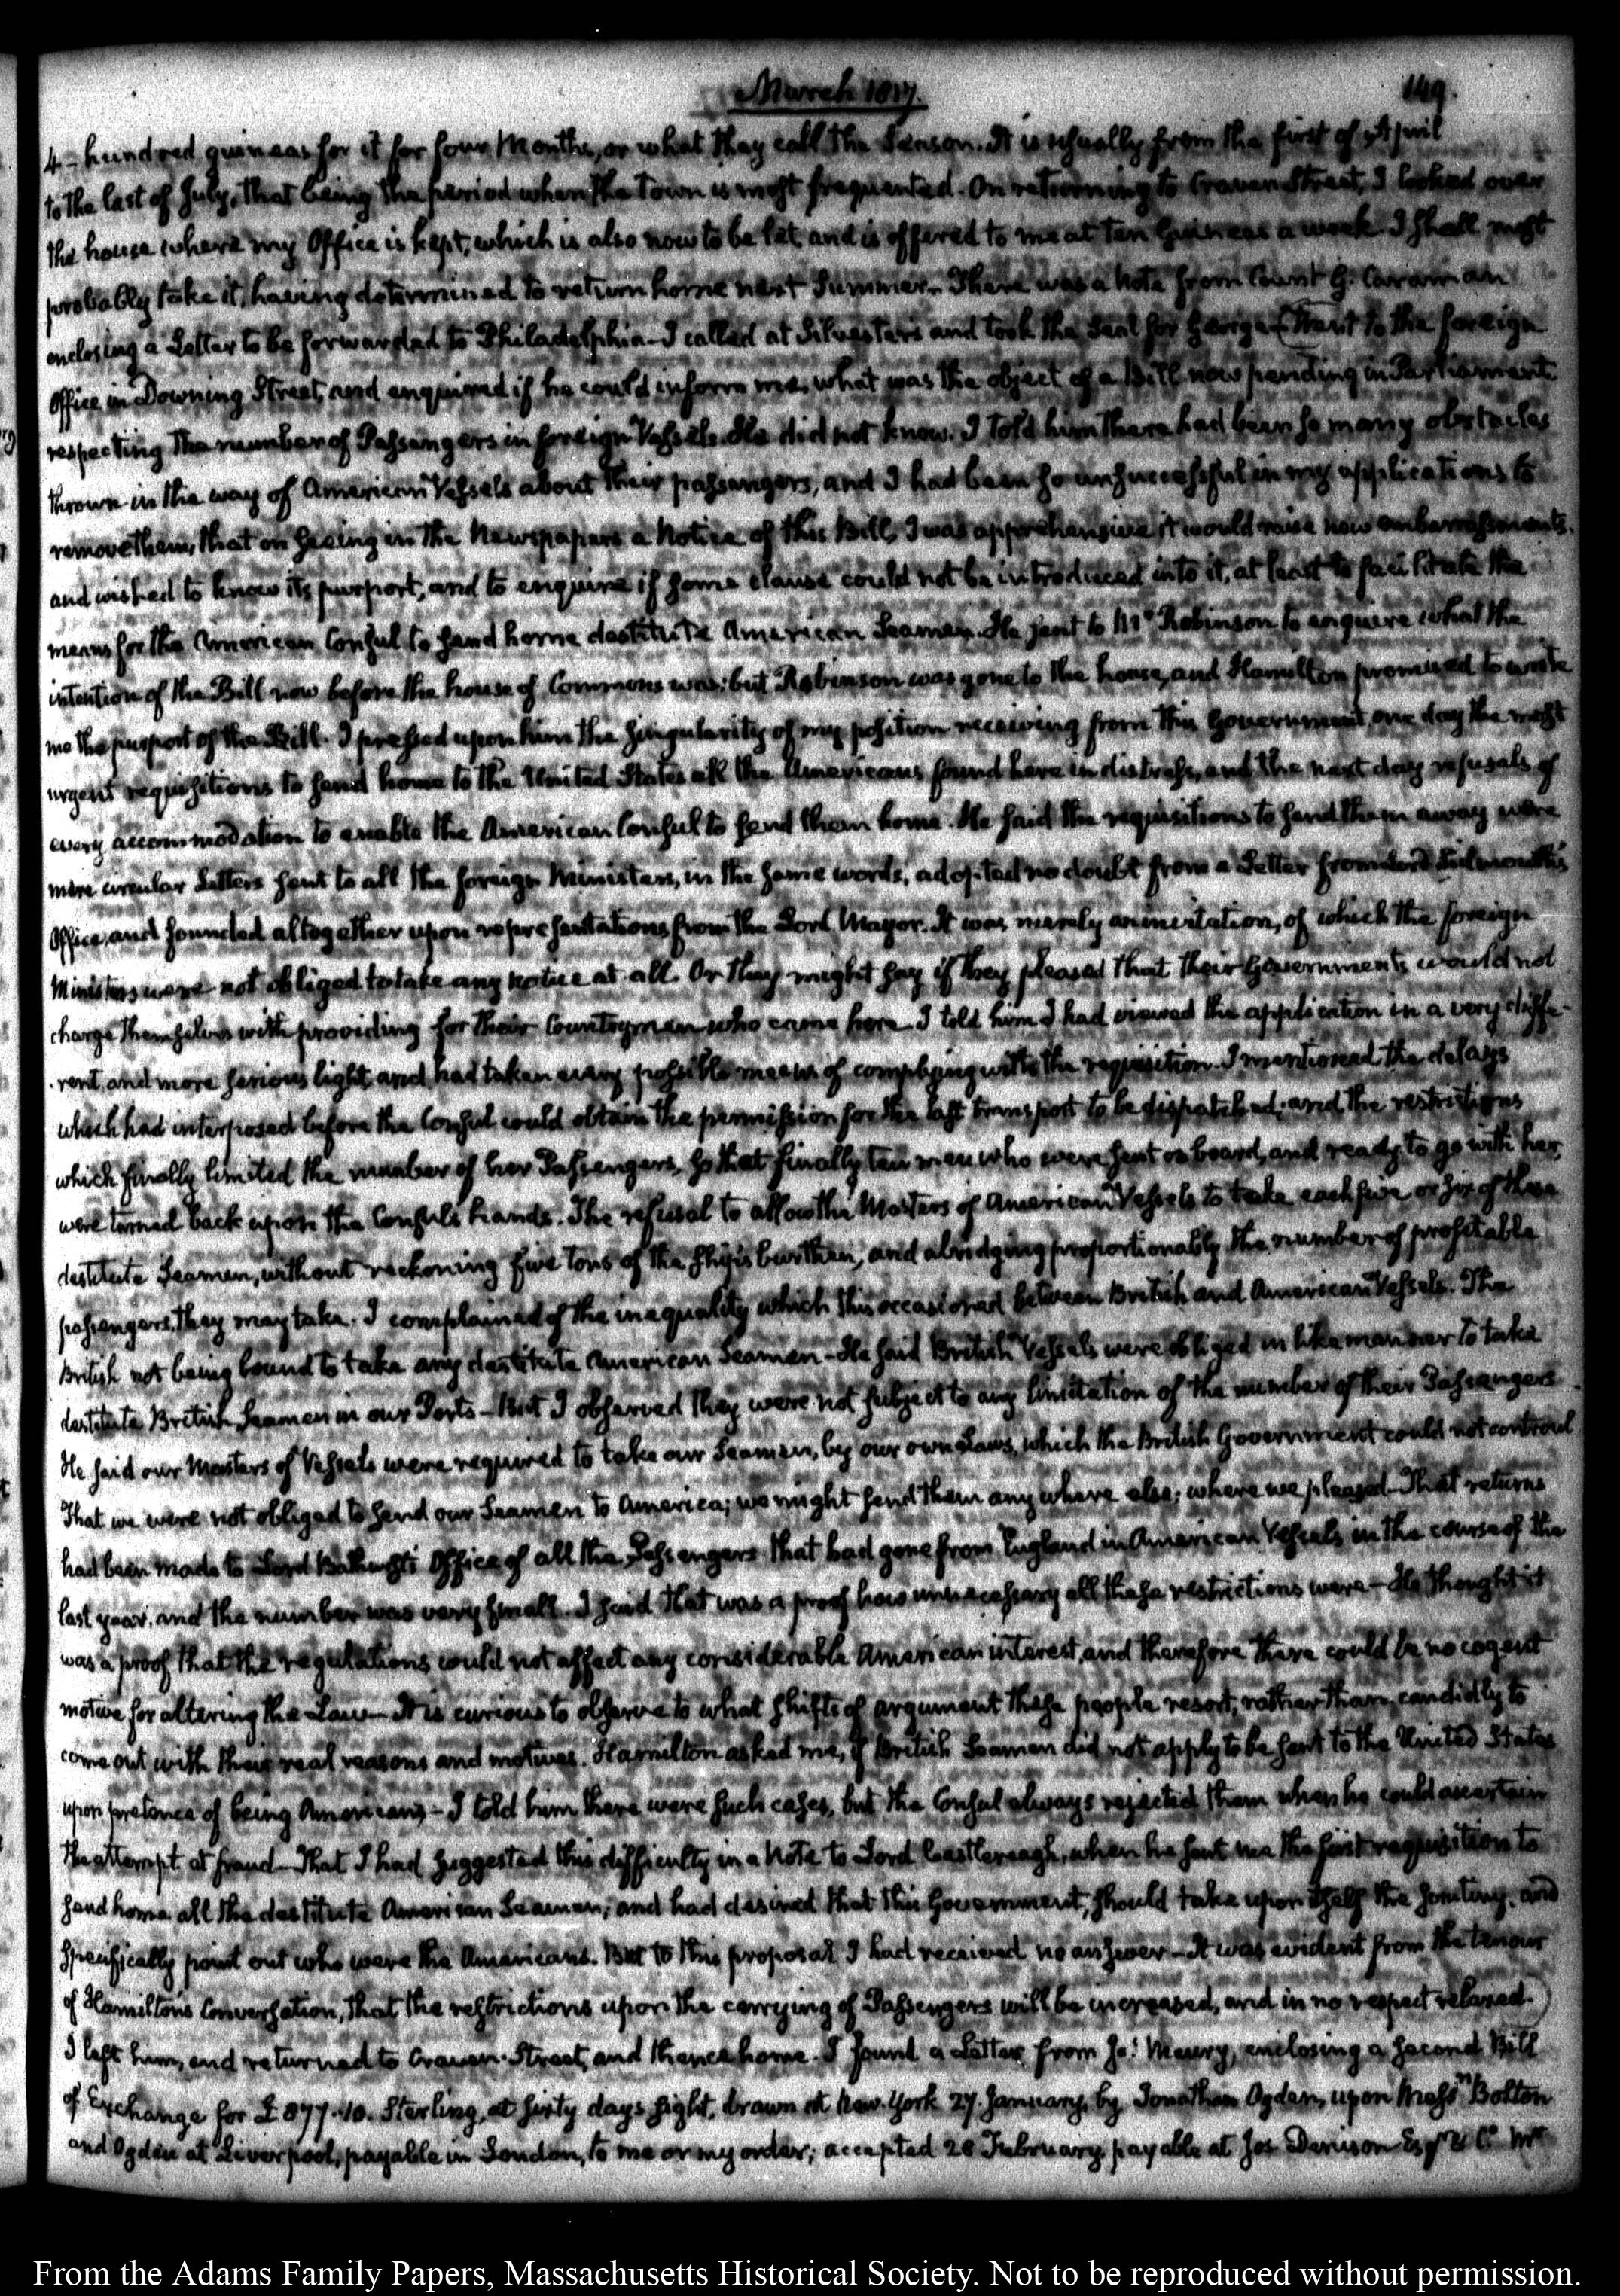 March 1817.
149.
4– hundred guineas for it for four Months, or what they call the Season. It is usually from the first of April
to the last of July, that being the period when the Town is most frequented. On returning to Craven Street, I looked over
the house where my Office is kept, which is also now to be let, and is offered to me at Ten Guineas a week. I shall most
probably take it, having determined to return home next Summer. There was a Note from Count G. Caraman
enclosing a Letter to be forwarded to Philadelphia– I called at Silvester's and took the Seal for George– (Went to the foreign
Office in Downing Street, and enquired if he could inform me, what was the object of a Bill now pending in Parliament
respecting the number of Passengers in foreign Vessels. He did not know. I told him there had been so many obstacles
thrown in the way of American Vessels about their passengers, and I had been so unsuccessful in my applications to
remove them, that on seeing in the Newspapers a Notice of this Bill, I was apprehensive it would raise new embarrassments,
and wished to know its purport, and to enquire if some clause could not be introduced into it, at least to facilitate the
means for the American Consul to send home destitute American Seamen. He sent to Mr Robinson to enquire what the
intention of the Bill now before the house of Commons was; but Robinson was gone to the house, and Hamilton promised to write
me the purport of the Bill. I pressed upon him the singularity of my position receiving from this Government, one day the most
urgent requisitions to send home to the United States all the Americans found here in distress, and the next day refusals of
every accommodation to enable the American Consul to send them home. He said the requisitions to send them away were
mere circular Letters sent to all the foreign Ministers, in the same words, adopted no doubt from a Letter from Lord Sidmouth's
Office, and founded altogether upon representations from the Lord Mayor. It was merely an invitation, of which the foreign
Ministers were not obliged to take any notice at all. Or they might say if they pleased that their Governments would not
charge themselves with providing for their Countrymen who came here. I told him I had viewed the application in a very diffe-
rent, and more serious light, and had taken every possible means of complying with the requisition. I mentioned the delays
which had interposed before the Consul could obtain the permission for the last transport to be dispatched; and the restrictions
which finally limited the number of her Passengers, so that finally ten men who were sent on board, and ready to go with her,
were turned back upon the Consul's hands. The refusal to allow the Masters of American Vessels to take each five or six of these
destitute Seamen, without reckoning five tons of the ship's burthen, and abridging proportionably the number of profitable
passengers, they may take. I complained of the inequality which this occasioned between British and American Vessels. The
British not being bound to take any destitute American Seamen– He said British Vessels were obliged in like manner to take
destitute British Seamen in our Ports– But I observed they were not subject to any limitation of the number of their Passengers
He said our Masters of Vessels were required to take our Seamen, by our own Laws, which the British Government could not controul
That we were not obliged to send our Seamen to America; we might send them any where else; where we pleased– That returns
had been made to Lord Bathurst's Office of all the Passengers that had gone from England in American Vessels in the course of the
last year, and the number was very small. I said that was a proof how unnecessary all these restrictions were– He thought it
was a proof that the regulations would not affect any considerable American interest, and therefore there could be no cogent
motive for altering the Law– It is curious to observe to what shifts of argument these people resort, rather than candidly to
come out with their real reasons and motives. Hamilton asked me, if British Seamen did not apply to be sent to the United States
upon pretence of being Americans– I told him there were such cases, but the Consul always rejected them when he could ascertain
the attempt at fraud– That I had suggested this difficulty in a Note to Lord Castlereagh, when he sent me the first requisition to
send home all the destitute American Seamen; and had desired that this Government, should take upon itself the scrutiny, and
specifically point out who were the Americans. But to this proposal I had received no answer– It was evident from the tenour
of Hamilton's Conversation, that the restrictions upon the carrying of Passengers will be increased, and in no respect relaxed.)
I left him, and returned to Craven-Street, and thence home. I found a Letter from Js. Maury, enclosing a second Bill
of Exchange for £877..10. Sterling, at sixty days sight, drawn at New-York 27. January, by Jonathan Ogden, upon Messrs Bolton
and Ogden at Liverpool, payable in London, to me or my order; accepted 28 February, payable at Jos. Denison Esqr & Co. Mr
From the Adams Family Papers, Massachusetts Historical Society. Not to be reproduced without permission.